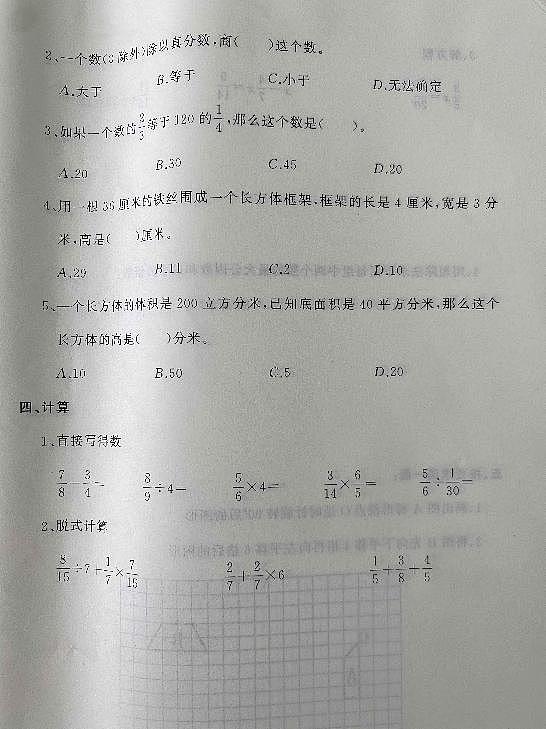 2、一个数(0除外)除以真分数,商(    )这个数。
A.大于    B.等于    C.小于    D.无法确定
3、如果一个数的2/3等于120的1/4,那么这个数是(    )。
A.20    B.30    C.45    D.20
4、用一根36厘米的铁丝围成一个长方体框架,框架的长是4厘米,宽是3分
米,高是(    )厘米。
A.29    B.11    C.2    D.10
5、一个长方体的体积是200立方分米,已知底面积是40平方分米,那么这个
长方体的高是(    )分米。
A.10    B.50    C.5    D.20
四、计算
1、直接写得数
7/8-3/4=    8/9÷4=    5/6×4=    3/14×6/5=    5/6÷1/30=
2、脱式计算
8/15÷7+1/7×7/15    2/7+2/7×6    1/5+3/8+4/5